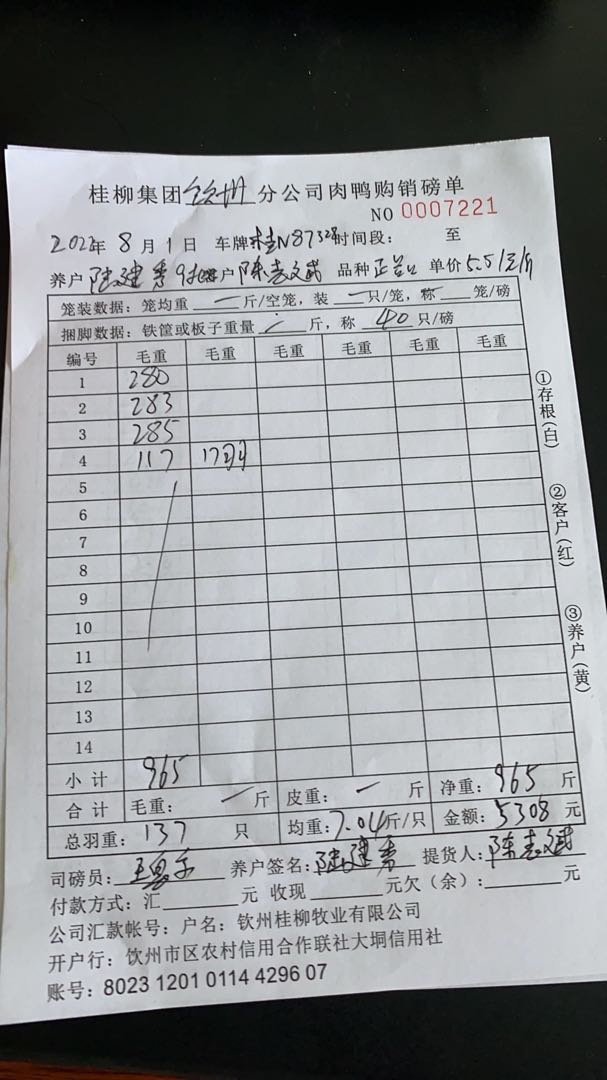 桂柳集团钦州分公司肉鸭购销磅单
NO 0007221
2022年 8月1日 车牌桂N87328时间段: 至
养户 陆建秀 客户 陈志斌 品种 单价5.5元/斤
笼装数据: 笼均重 一 斤/空笼, 装 一 只/笼, 称 笼/磅
捆脚数据: 铁筐或板子重量 斤, 称 40 只/磅
编号 毛重 毛重 毛重 毛重 毛重 毛重
1 280
2 283
3 285
4 117 17只
5
6
7
8
9
10
11
12
13
14
小计 965
合计 毛重: 一 斤 皮重: 一 斤 净重: 965 斤
总羽重: 137 只 均重: 7.04斤/只 金额: 5308 元
司磅员: 养户签名: 陆建秀 提货人: 陈志斌
付款方式: 汇 元 收现 元欠(余): 元
公司汇款帐号: 户名: 钦州桂柳牧业有限公司
开户行: 饮州市区农村信用合作联社大垌信用社
账号: 8023 1201 0114 4296 07
①存根(白)
②客户(红)
③养户(黄)